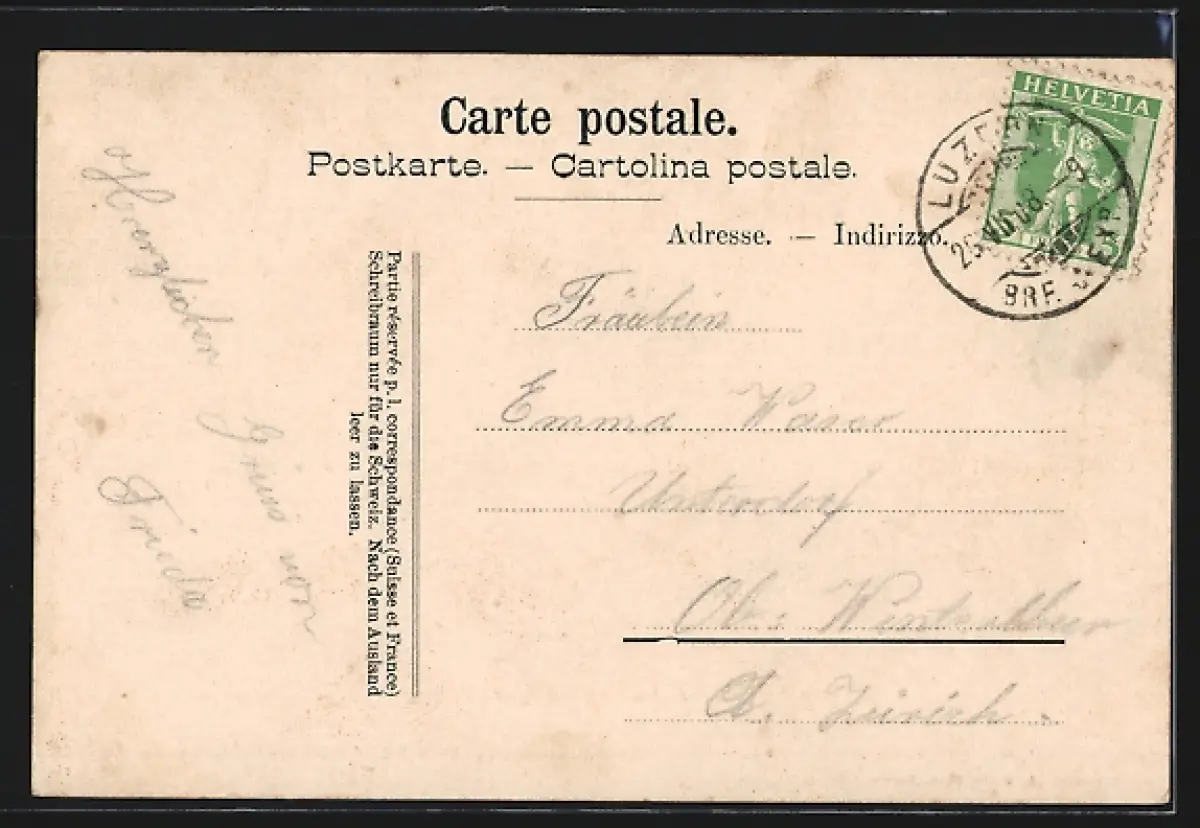 Carte postale.
Postkarte. — Cartolina postale.
Adresse. — Indirizzo.
HELVETIA
5
LUZERN
BRF. EXP.
Partie réservée p. l. correspondance (Suisse et France)
Schreibraum nur für die Schweiz. Nach dem Ausland
leer zu lassen.
Herzlichen
Gruss von
Frieda
Fräulein
Emma
Unterdorf
Ob. Winterthur
Zürich.